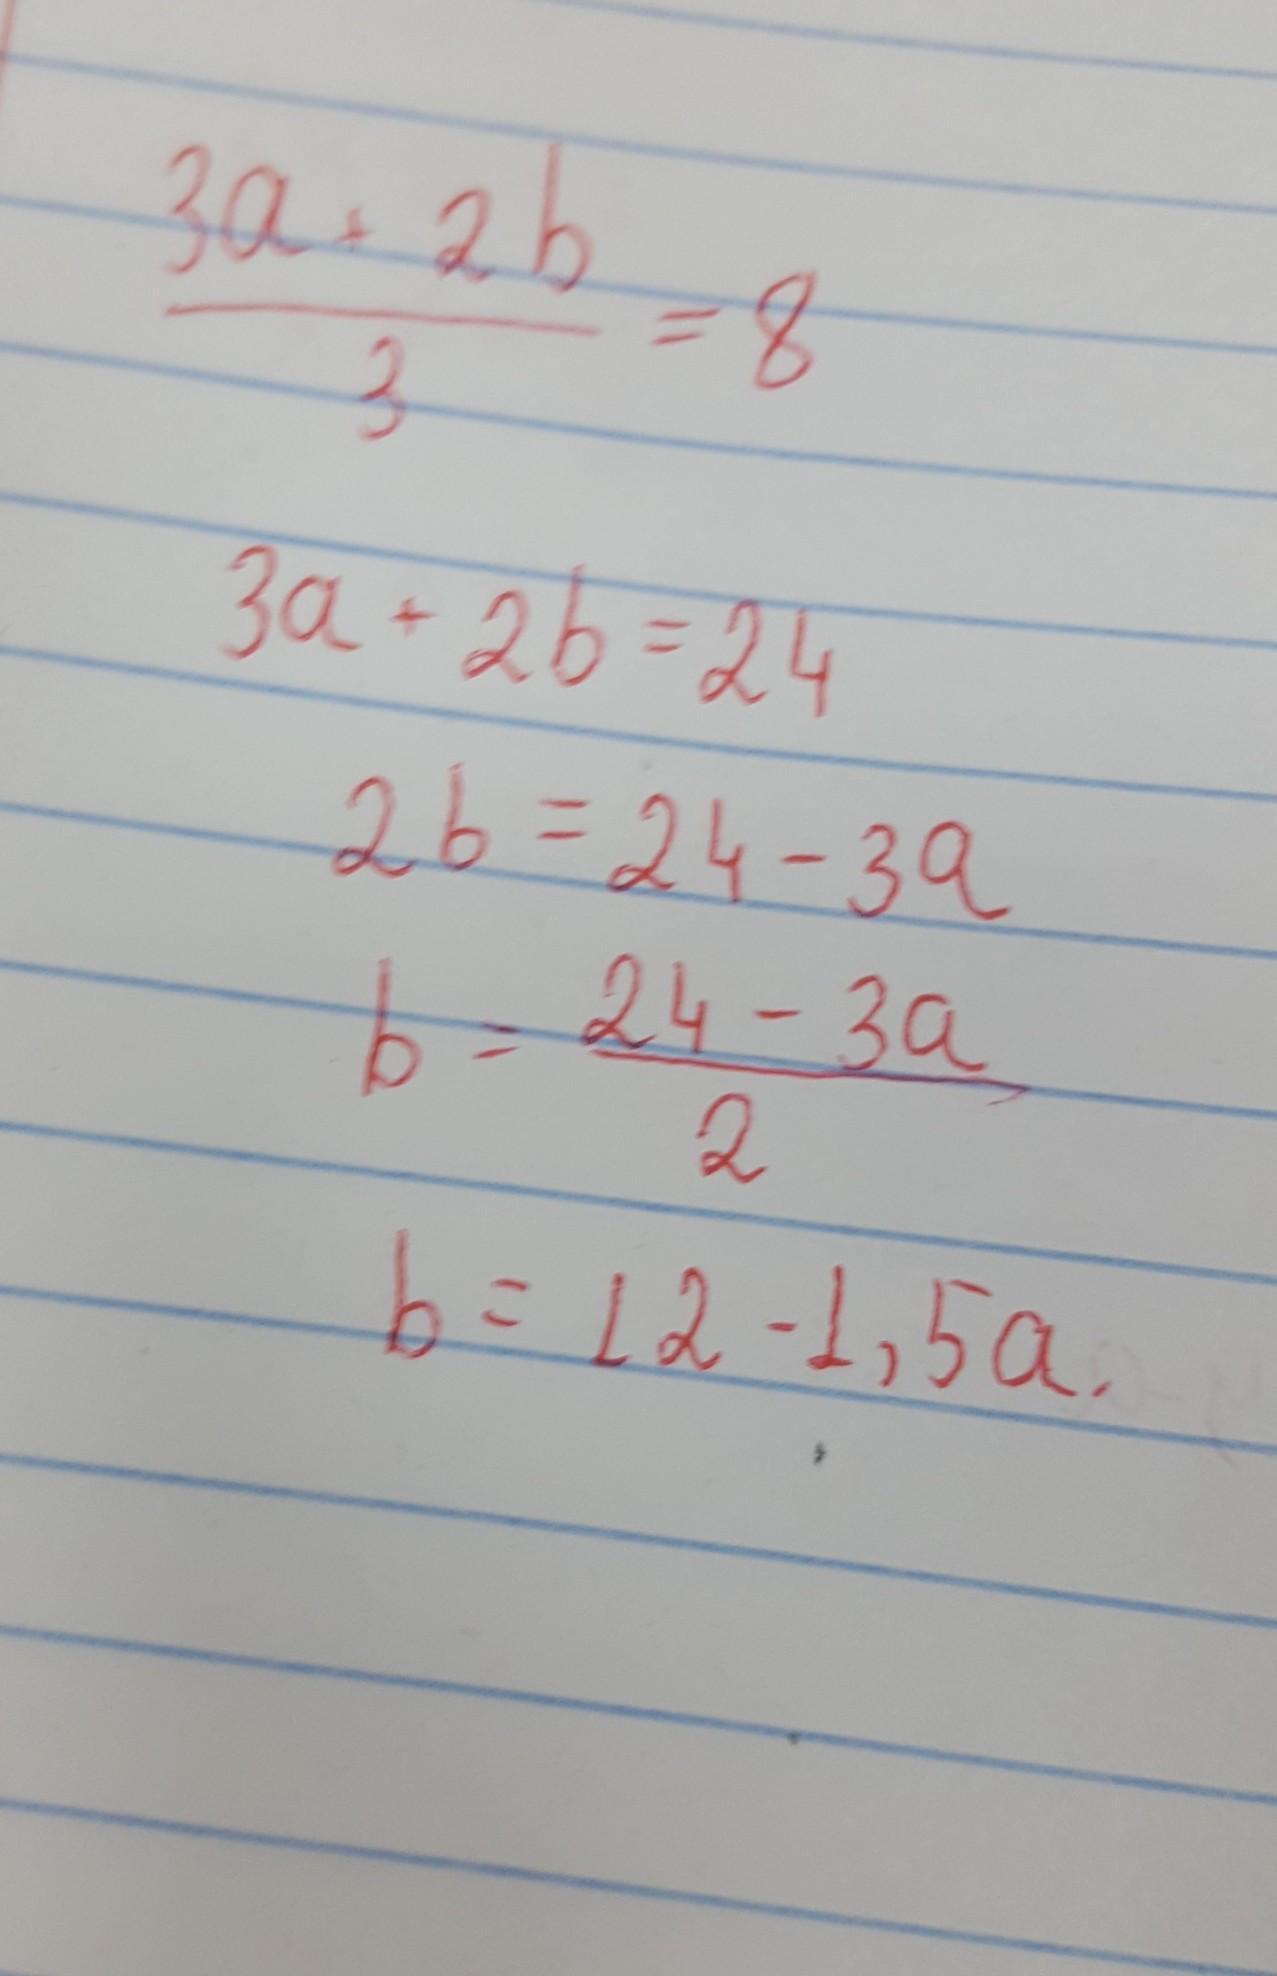 3a + 2b
3
= 8
3a + 2b = 24
2b = 24 - 3a
b = 24 - 3a
2
b = 12 - 1,5a.